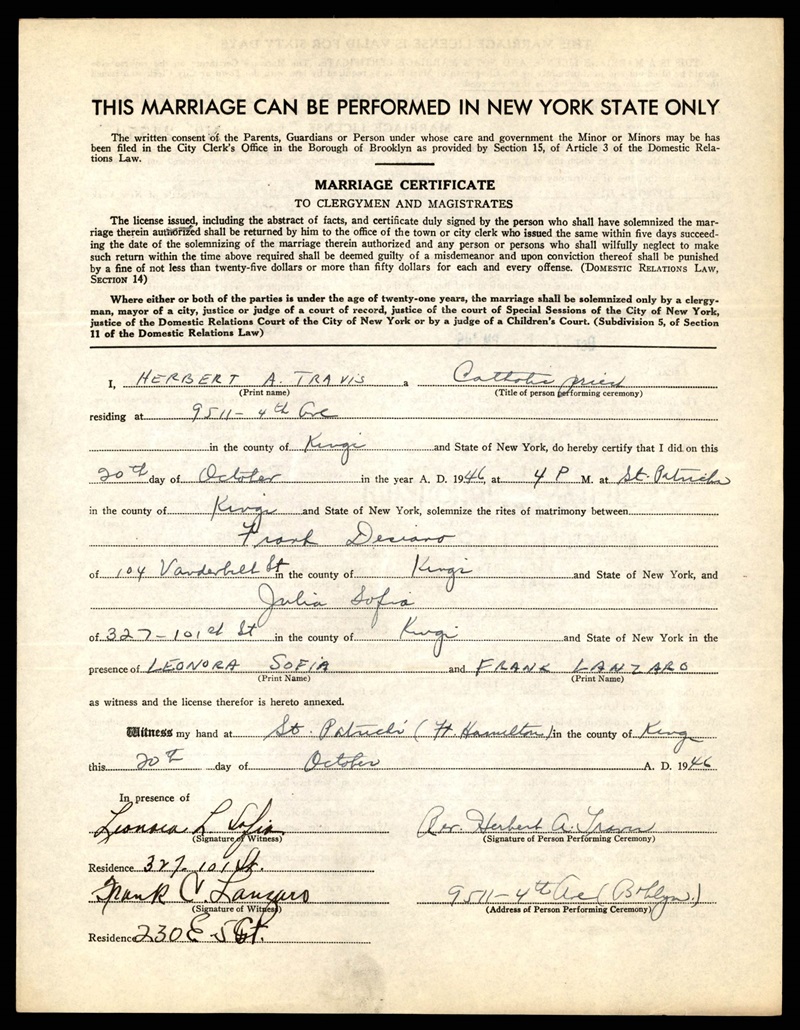 THIS MARRIAGE CAN BE PERFORMED IN NEW YORK STATE ONLY
The written consent of the Parents, Guardians or Person under whose care and government the Minor or Minors may be has
been filed in the City Clerk's Office in the Borough of Brooklyn as provided by Section 15, of Article 3 of the Domestic Rela-
tions Law.
MARRIAGE CERTIFICATE
TO CLERGYMEN AND MAGISTRATES
The license issued, including the abstract of facts, and certificate duly signed by the person who shall have solemnized the mar-
riage therein authorized shall be returned by him to the office of the town or city clerk who issued the same within five days succeed-
ing the date of the solemnizing of the marriage therein authorized and any person or persons who shall wilfully neglect to make
such return within the time above required shall be deemed guilty of a misdemeanor and upon conviction thereof shall be punished
by a fine of not less than twenty-five dollars or more than fifty dollars for each and every offense. (DOMESTIC RELATIONS LAW,
SECTION 14)
Where either or both of the parties is under the age of twenty-one years, the marriage shall be solemnized only by a clergy-
man, mayor of a city, justice or judge of a court of record, justice of the court of Special Sessions of the City of New York,
justice of the Domestic Relations Court of the City of New York or by a judge of a Children's Court. (Subdivision 5, of Section
11 of the Domestic Relations Law)
I, HERBERT A. TRAVIS a Catholic priest
(Print name) (Title of person performing ceremony)
residing at 9511- 4th Ave
in the county of Kings and State of New York, do hereby certify that I did on this
20th day of October in the year A. D. 1946, at 4 P M. at St. Patricks
in the county of Kings and State of New York, solemnize the rites of matrimony between
Frank Desiano
of 104 Vanderbilt St in the county of Kings and State of New York, and
Julia Sofia
of 327-101st St in the county of Kings and State of New York in the
presence of LEONORA SOFIA and FRANK LANZARO
(Print Name) (Print Name)
as witness and the license therefor is hereto annexed.
Witness my hand at St. Patricks (Ft. Hamilton) in the county of Kings
this 20th day of October A. D. 1946
In presence of
Leonora L. Sofia Rev. Herbert A. Travis
(Signature of Witness) (Signature of Person Performing Ceremony)
Residence 327-101 St.
Frank C. Lanzaro 9511-4th Ave (Bklyn.)
(Signature of Witness) (Address of Person Performing Ceremony)
Residence 230 E 5 St.